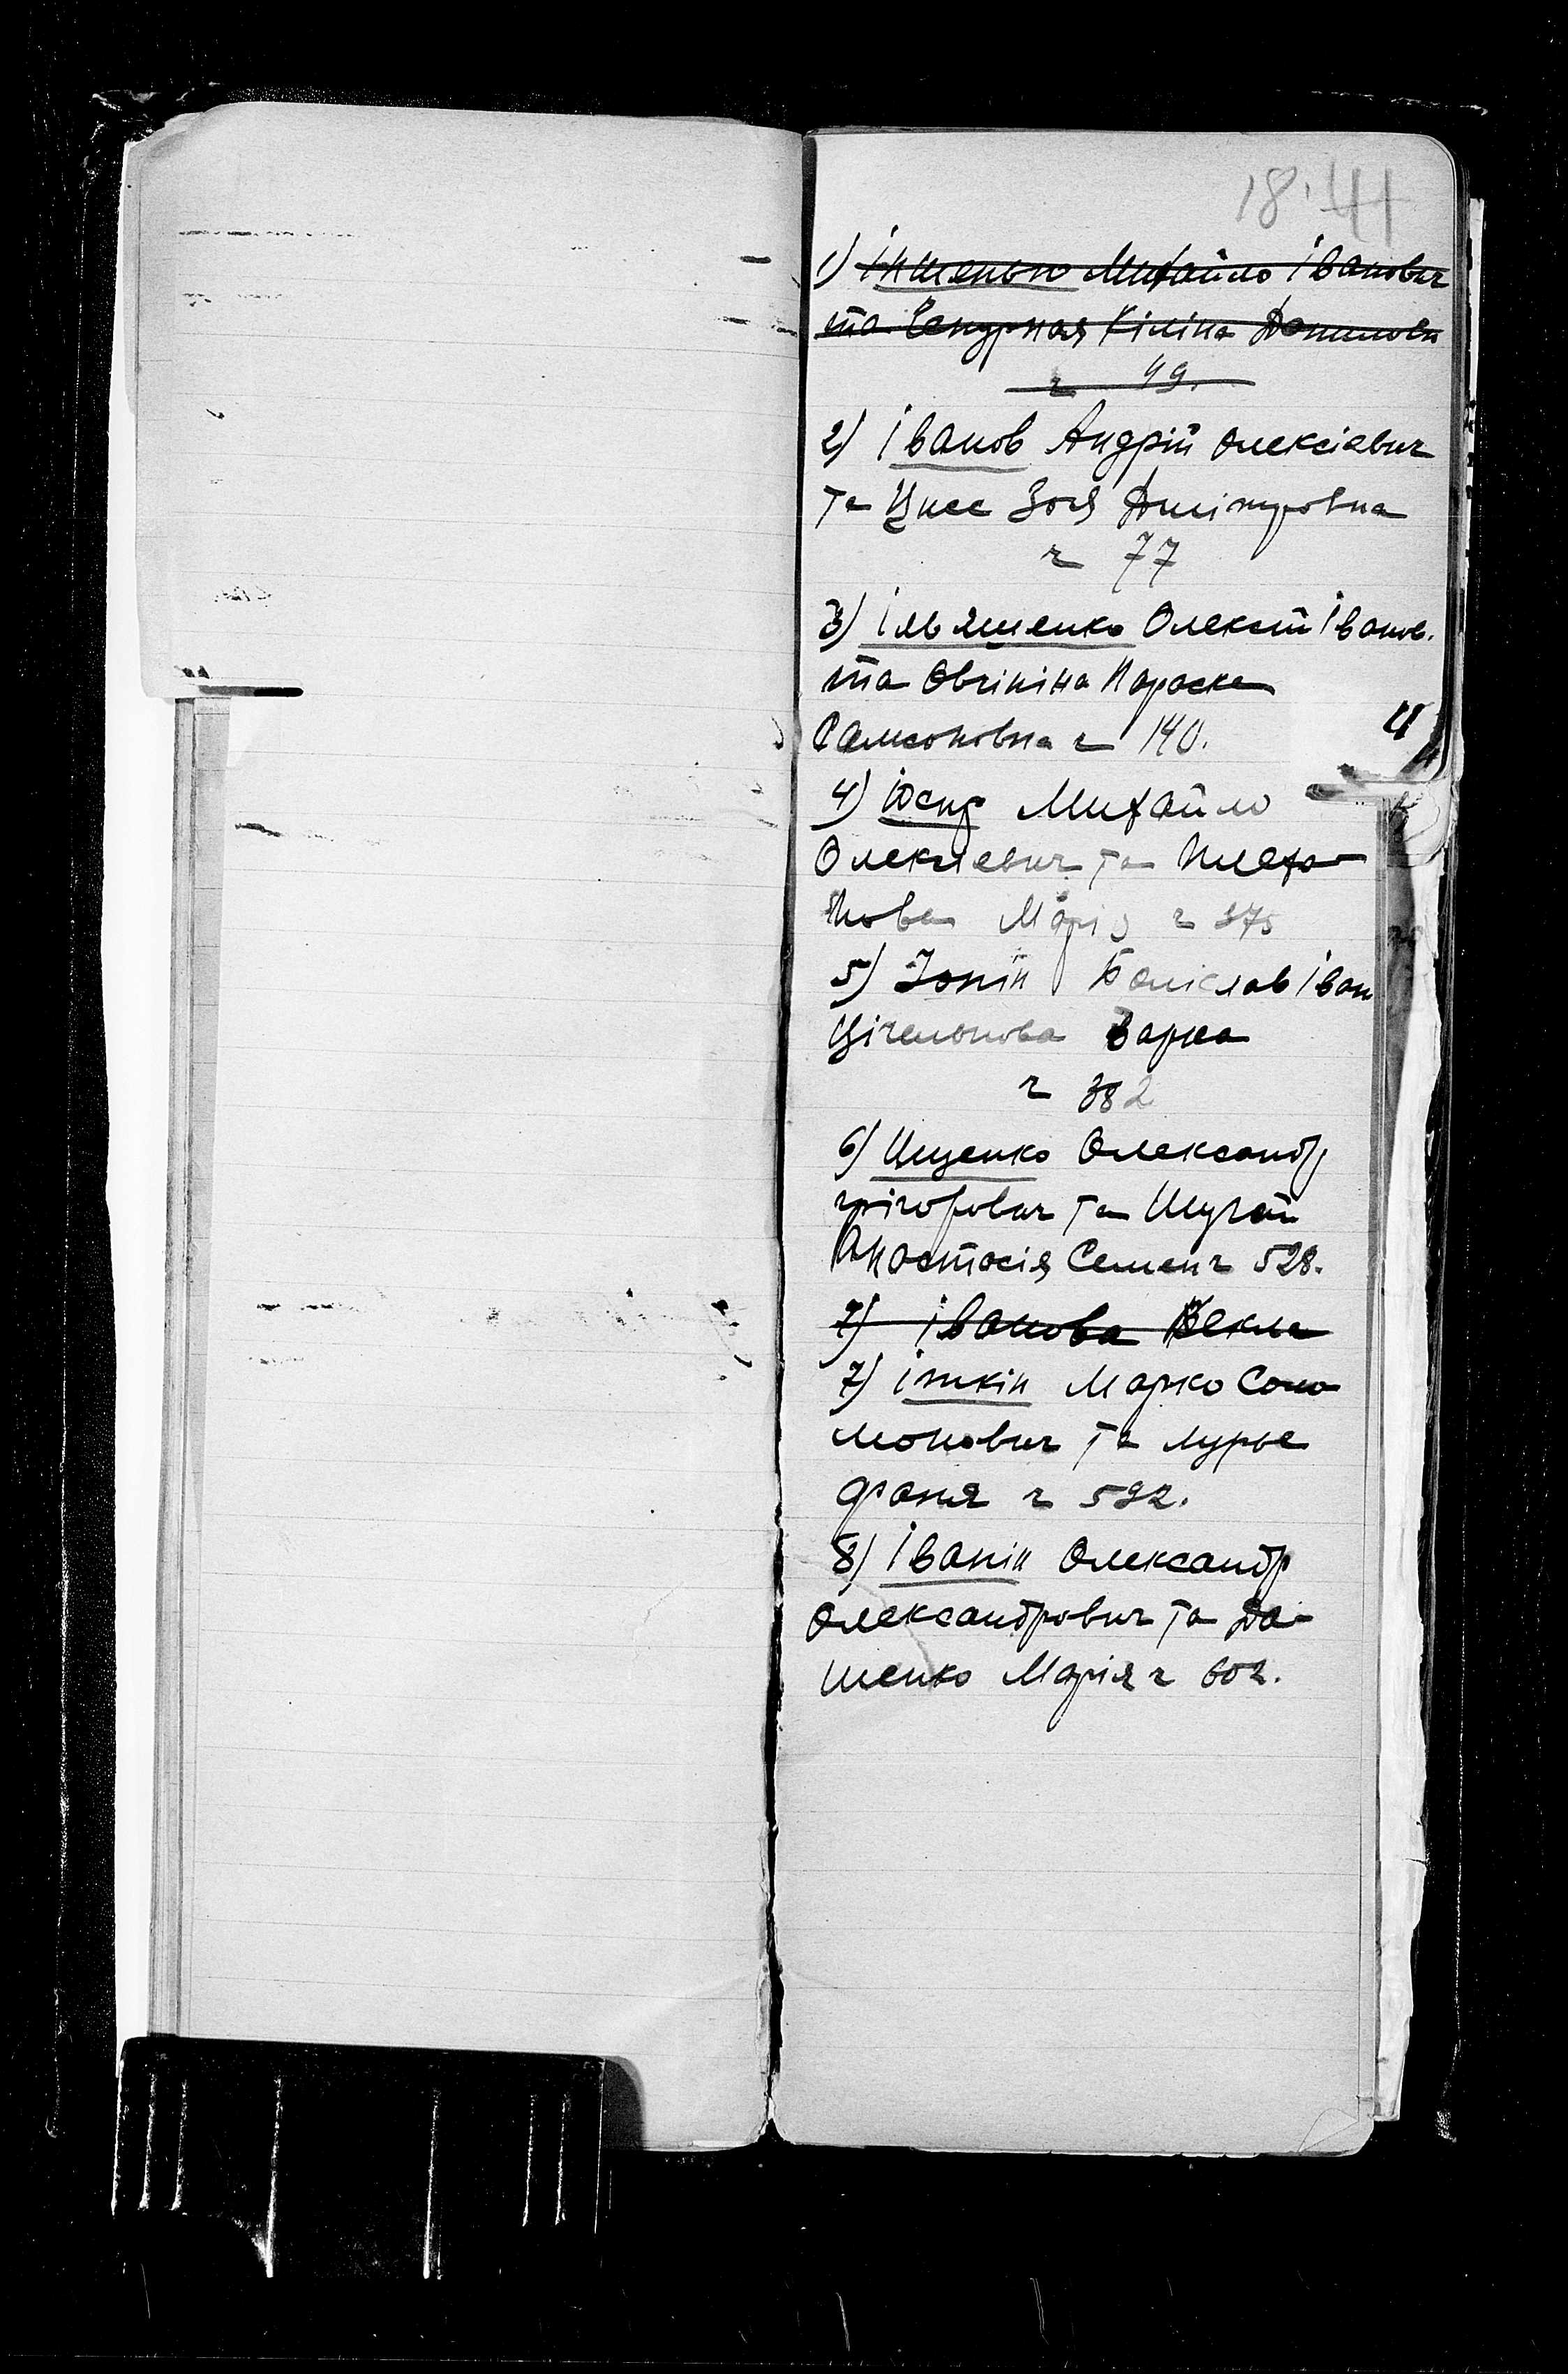 18. 41
1) Іншенько Михайло Іванович
та Чепурная Кіліна Даниловн
ч 49.
2) Іванов Андрій Олексієвич
та Цисе Зоя Дмітровна
ч 77
3) Ільяшенко Олексій Іванов.
та Овчініна Параска
Самсоновна ч 140.
И
4) Юсup Михайло
Олексієвич та Плеха-
нова Марія ч 375
5) Іонін Боліслав Іван
Ціхемонова Варка
ч 382
6) Ищенко Олександр
Грігорович та Шугай
Анастасія Семен ч 528.
7) Іванова Векла
7) Іткін Марко Соло
монович та Лурье
Фаня ч 592.
8) Іванін Олександр
Олександрович та Да-
шенко Марія ч 602.